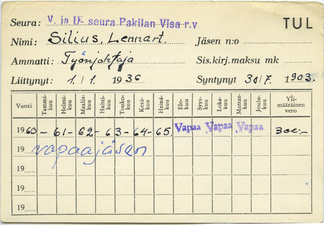 Seura: V. ja U. seura Pakilan Visa r.y TUL
Nimi: Silius, Lennart Jäsen n:o
Ammatti: Työnjohtaja Sis.kirj.maksu mk
Liittynyt: 1/1 1936 Syntynyt 30/7 1903
Vuosi Tammikuu Helmikuu Maaliskuu Huhtikuu Toukokuu Kesäkuu Heinäkuu Elokuu Syyskuu Lokakuu Marraskuu Joulukuu Ylimääräinen vero
1960 – 61 – 62 – 63 – 64 – 65. Vapaa Vapaa Vapaa Vapaa 300:–
19 vapaajäsen
19
19
19